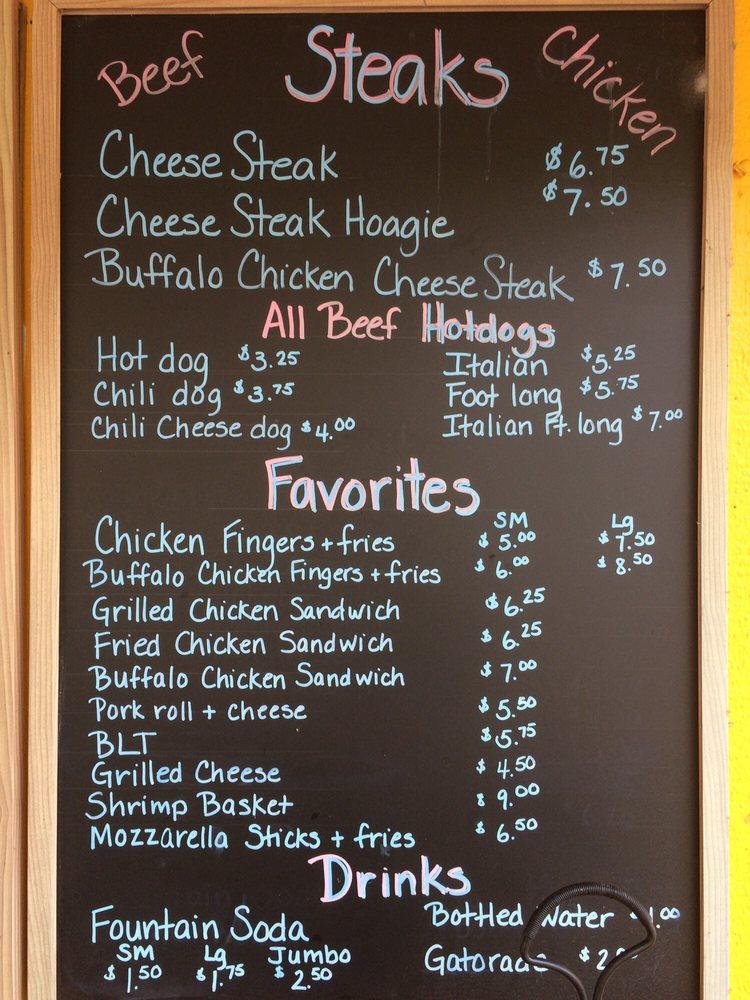 Beef Steaks Chicken
Cheese Steak $6.75
Cheese Steak Hoagie $7.50
Buffalo Chicken Cheese Steak $7.50
All Beef Hotdogs
Hot dog $3.25 Italian $5.25
Chili dog $3.75 Foot long $5.75
Chili Cheese dog $4.00 Italian Ft. long $7.00
Favorites
SM Lg
Chicken Fingers + fries $5.00 $7.50
Buffalo Chicken Fingers + fries $6.00 $8.50
Grilled Chicken Sandwich $6.25
Fried Chicken Sandwich $6.25
Buffalo Chicken Sandwich $7.00
Pork roll + cheese $5.50
BLT $5.75
Grilled Cheese $4.50
Shrimp Basket $9.00
Mozzarella Sticks + fries $6.50
Drinks
Fountain Soda Bottled Water
SM Lg Jumbo Gatorade
$1.50 $1.75 $2.50